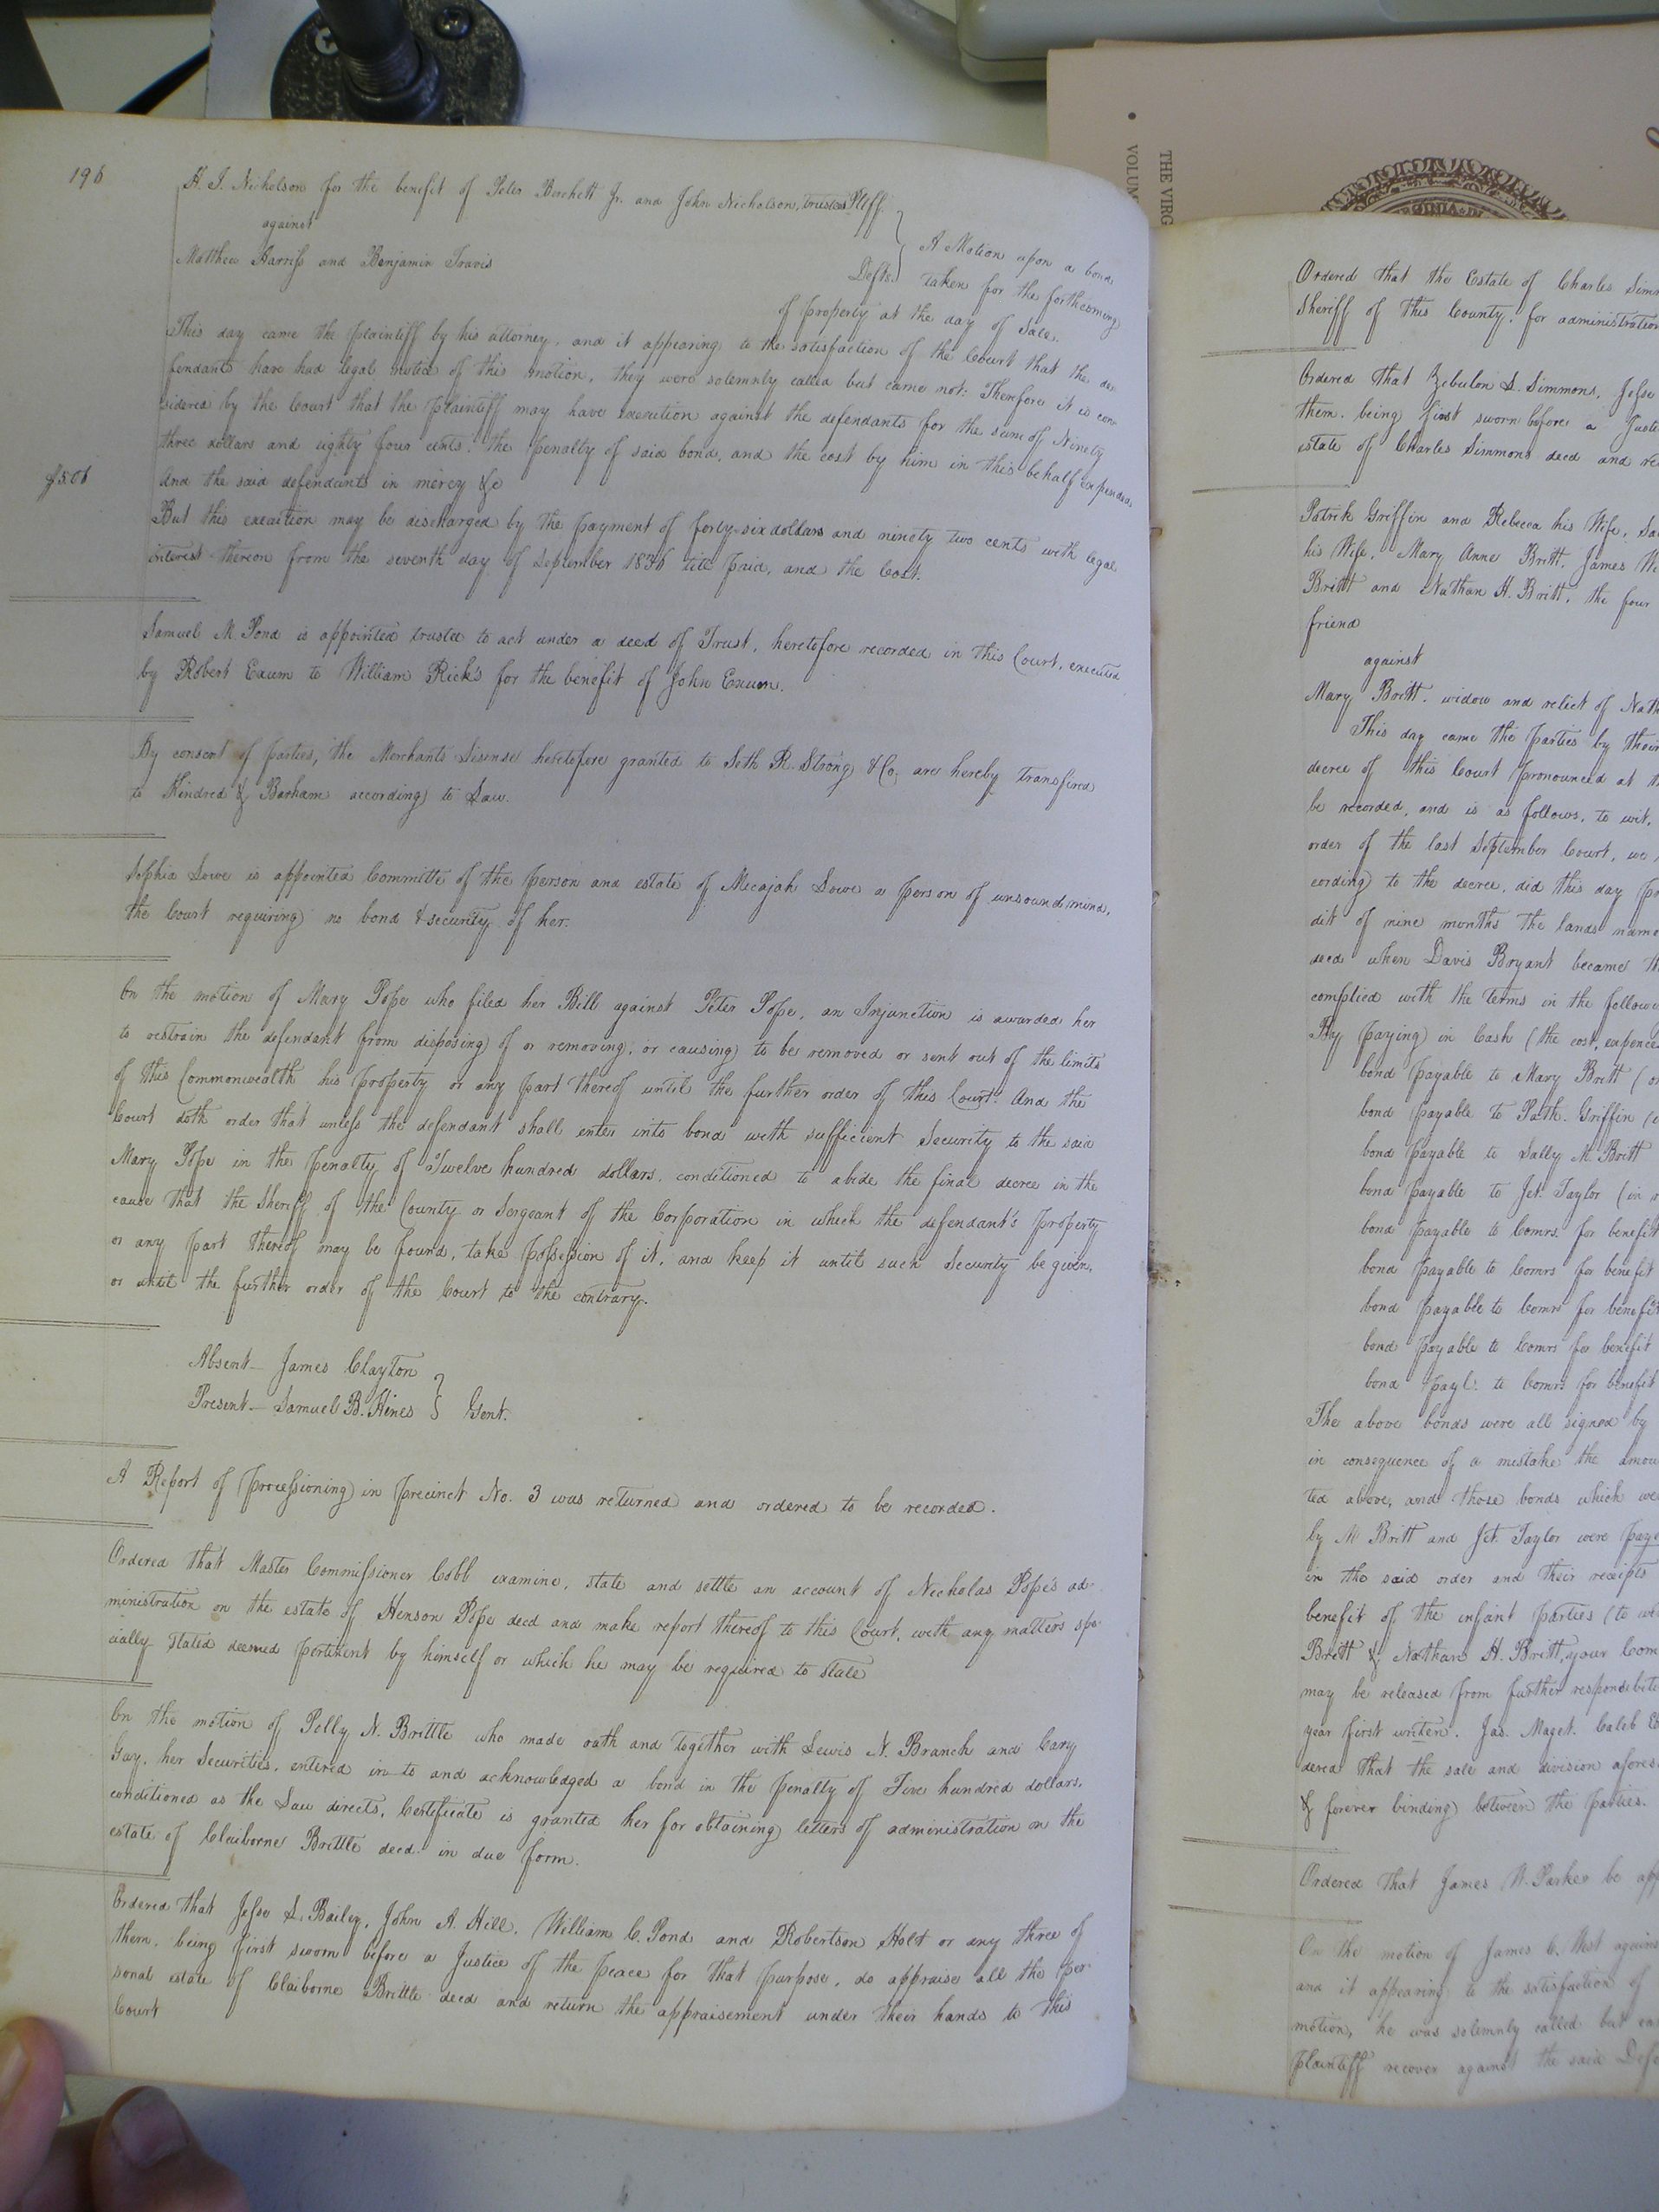 196
H. J. Nicholson for the benefit of Peter Birchett Jr. and John Nicholson, trustee Pltff.
against
Matthew Harriss and Benjamin Travis Defts.
A Motion upon a bond
taken for the forthcoming
of property at the day of Sale.
This day came the plaintiff by his attorney, and it appearing to the satisfaction of the Court that the de-
fendants have had legal notice of this motion, they were solemnly called but came not: Therefore it is con-
sidered by the Court that the plaintiff may have execution against the defendants for the sum of Ninety
three dollars and eighty four cents, the penalty of said bond, and the cost by him in this behalf expended,
And the said defendants in mercy &c
$5.06
But this execution may be discharged by the payment of forty-six dollars and ninety two cents with legal
interest thereon from the seventh day of September 1836 till paid, and the Cost.
Samuel M. Pond is appointed trustee to act under a deed of Trust, heretofore recorded in this Court, executed
by Robert Exum to William Rick's for the benefit of John Exum.
By consent of parties, the Merchants Lisense heretofore granted to Seth R. Strong & Co. are hereby transfired
to Kindred & Barham according to Law.
Sophia Lowe is appointed Committe of the person and estate of Micajah Lowe a person of unsound mind,
the Court requiring no bond & security of her.
On the motion of Mary Pope who filed her Bill against Peter Pope, an Injunction is awarded her
to restrain the defendant from disposing of or removing, or causing to be removed or sent out of the limits
of this Commonwealth his property or any part thereof until the further order of this Court. And the
Court doth order that unless the defendant shall enter into bond with sufficient Security to the said
Mary Pope in the penalty of Twelve hundred dollars, conditioned to abide the final decree in the
cause that the Sheriff of the County or Sergeant of the Corporation in which the defendant's property
or any part thereof may be found, take possession of it, and keep it until such Security be given,
or until the further order of the Court to the contrary.
Absent— James Clayton
Present— Samuel B. Hines } Gent.
A Report of processioning in precinct No. 3 was returned and ordered to be recorded.
Ordered that Master Commissioner Cobb examine, state and settle an account of Nicholas Pope's ad-
ministration on the estate of Henson Pope decd and make report thereof to this Court, with any matters spe-
cially stated deemed pertinent by himself or which he may be required to state
On the motion of Polly N. Brittle who made oath and together with Lewis N. Branch and Cary
Gay, her Securities, entered in-to and acknowledged a bond in the penalty of Five hundred dollars,
conditioned as the Law directs, Certificate is granted her for obtaining letters of administration on the
estate of Claiborne Brittle decd. in due form.
Ordered that Jesse L. Bailey, John A. Hill, William C. Pond and Robertson Holt or any three of
them, being first sworn before a Justice of the peace for that purpose, do appraise all the per-
sonal estate of Claiborne Brittle decd and return the appraisement under their hands to this
Court
THE VIRG
VOLUM
Ordered that the Estate of Charles Simm
Sheriff of this County, for administration
Ordered that Zebulon L. Simmons, Jesse
them, being first sworn before a Justi
estate of Charles Simmons decd and re
Patrick Griffin and Rebecca his Wife, Sa
his Wife, Mary Anne Britt, James W
Britt and Nathan H. Britt, the four
friend
against
Mary Britt, widow and relict of Nath
This day came the parties by their
decree of this Court pronounced at t
be recorded, and is as follows, to wit,
order of the last September Court, we
cording to the decree, did this day p
dit of nine months the lands name
decd when Davis Bryant became th
complied with the terms in the followi
By paying in Cash (the cost, expences
bond payable to Mary Britt (o
bond payable to Path. Griffin (
bond payable to Sally M. Britt
bond payable to Jet. Taylor (in
bond payable to Comrs. for benefit
bond payable to Comrs for benefit
bond payable to Comrs for benefit
bond payable to Comrs for benefit
bond payl. to Comrs for benefit
The above bonds were all signed by
in consequence of a mistake the amou
ted above, and those bonds which we
by M Britt and Jet. Taylor were paya
in the said order and their receipts
benefit of the infant parties (to wi
Britt & Nathan H. Britt, your Com
may be released from further responsibili
year first writen. Jas. Maget. Caleb
dered that the sale and division afores
& forever binding between the parties.
Ordered that James W. Parker be app
On the motion of James C. West agains
and it appearing to the satisfaction of
motion, he was solemnly called but ca
plaintiff recover against the said Defe